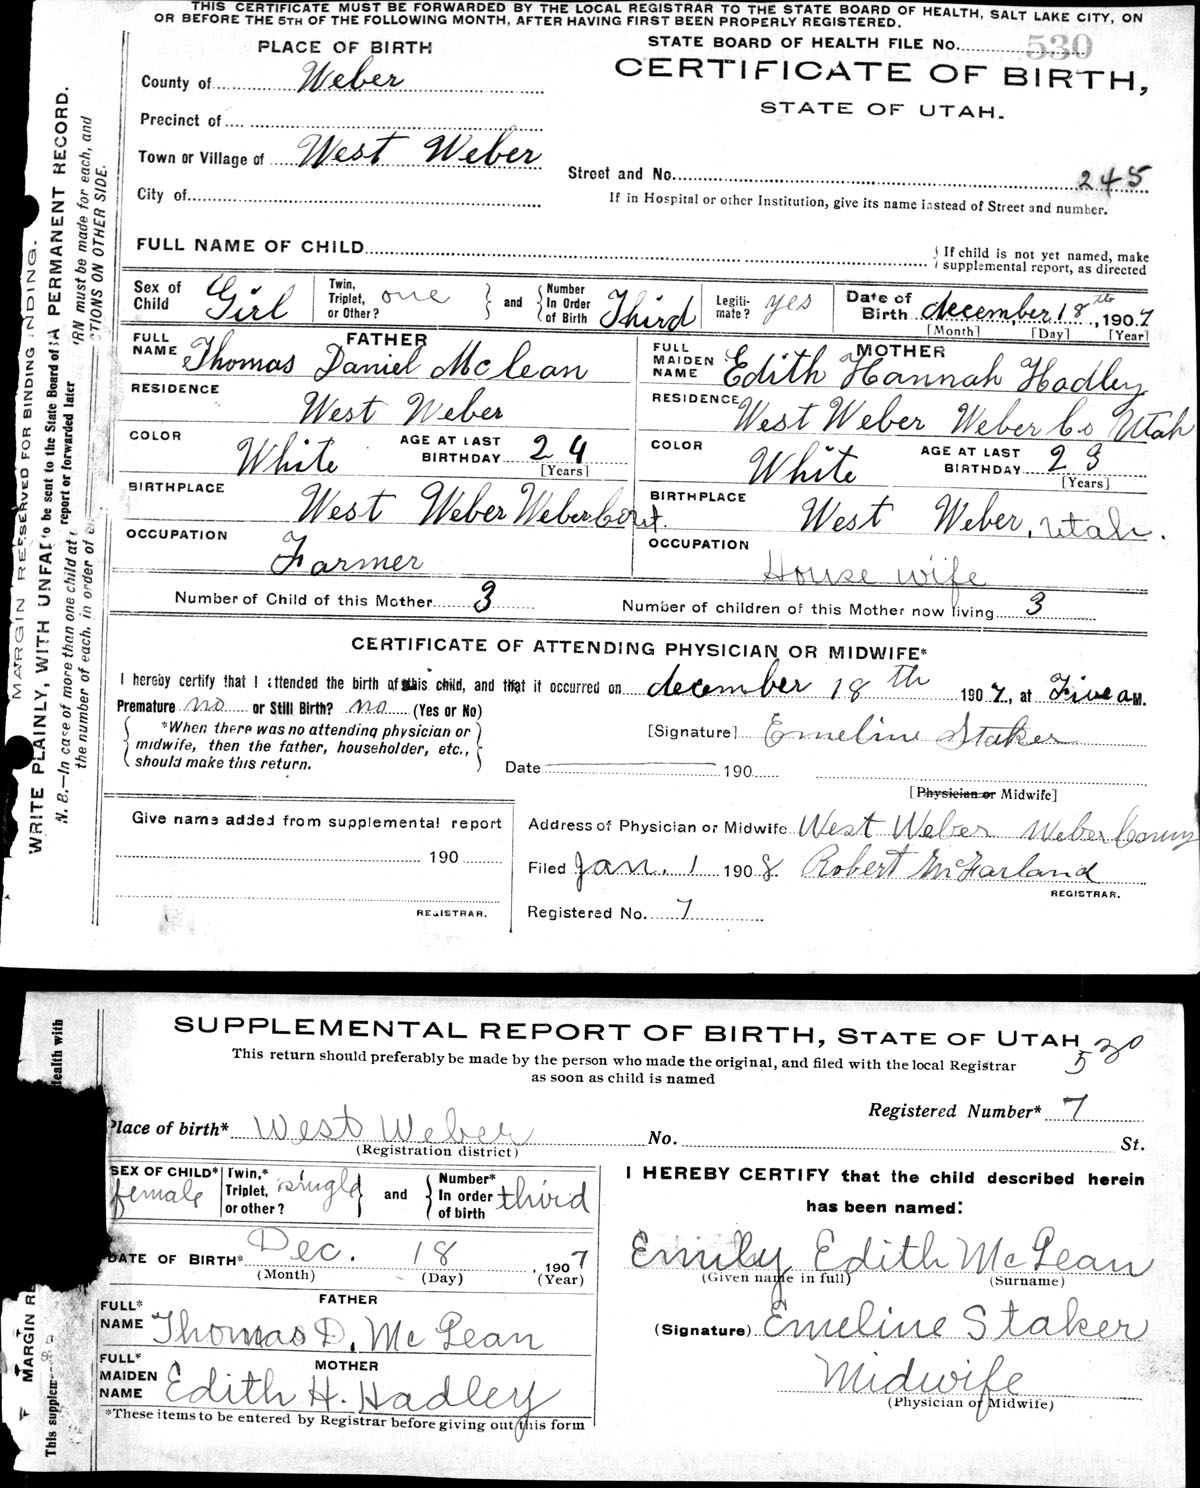 THIS CERTIFICATE MUST BE FORWARDED BY THE LOCAL REGISTRAR TO THE STATE BOARD OF HEALTH, SALT LAKE CITY, ON
OR BEFORE THE 5TH OF THE FOLLOWING MONTH, AFTER HAVING FIRST BEEN PROPERLY REGISTERED.
PLACE OF BIRTH
STATE BOARD OF HEALTH FILE No. 530
CERTIFICATE OF BIRTH,
STATE OF UTAH.
County of Weber
Precinct of
Town or Village of West Weber
City of
Street and No. 245
If in Hospital or other Institution, give its name instead of Street and number.
FULL NAME OF CHILD
If child is not yet named, make
supplemental report, as directed
Sex of Child Girl
Twin, Triplet, or Other? one
and
Number In Order of Birth Third
Legiti-mate? yes
Date of Birth december 18th, 1907
[Month] [Day] [Year]
FATHER
FULL NAME Thomas Daniel McLean
RESIDENCE West Weber
COLOR White
AGE AT LAST BIRTHDAY 24
[Years]
BIRTHPLACE West Weber Weber Co ut.
OCCUPATION Farmer
MOTHER
FULL MAIDEN NAME Edith Hannah Hadley
RESIDENCE West Weber Weber Co Utah
COLOR White
AGE AT LAST BIRTHDAY 23
[Years]
BIRTHPLACE West Weber, Utah.
OCCUPATION House wife
Number of Child of this Mother 3
Number of children of this Mother now living 3
CERTIFICATE OF ATTENDING PHYSICIAN OR MIDWIFE*
I hereby certify that I attended the birth of this child, and that it occurred on december 18th 1907, at Five a M.
Premature no or Still Birth? no (Yes or No)
*When there was no attending physician or
midwife, then the father, householder, etc.,
should make this return.
[Signature] Emeline Staker
Date 190
[Physician or Midwife]
Give name added from supplemental report
190
REGISTRAR.
Address of Physician or Midwife West Weber Weber County
Filed Jan. 1 1908. Robert McFarland
REGISTRAR.
Registered No. 7
MARGIN RESERVED FOR BINDING
WRITE PLAINLY, WITH UNFAD
to be sent to the State Board of
A PERMANENT RECORD.
N. B.—In case of more than one child at
report or forwarded later
RN must be made for each, and
the number of each, in order of
CTIONS ON OTHER SIDE.
SUPPLEMENTAL REPORT OF BIRTH, STATE OF UTAH
530
This return should preferably be made by the person who made the original, and filed with the local Registrar
as soon as child is named
Registered Number* 7
Place of birth* West Weber No. St.
(Registration district)
SEX OF CHILD* female
Twin,* Triplet, or other? single
and
Number* In order of birth third
DATE OF BIRTH* Dec. 18, 1907
(Month) (Day) (Year)
FATHER
FULL* NAME Thomas D. McLean
MOTHER
FULL* MAIDEN NAME Edith H. Hadley
*These items to be entered by Registrar before giving out this form
I HEREBY CERTIFY that the child described herein
has been named:
Emily Edith McLean
(Given name in full) (Surname)
(Signature) Emeline Staker
Midwife
(Physician or Midwife)
Health with
MARGIN RE
This supplem